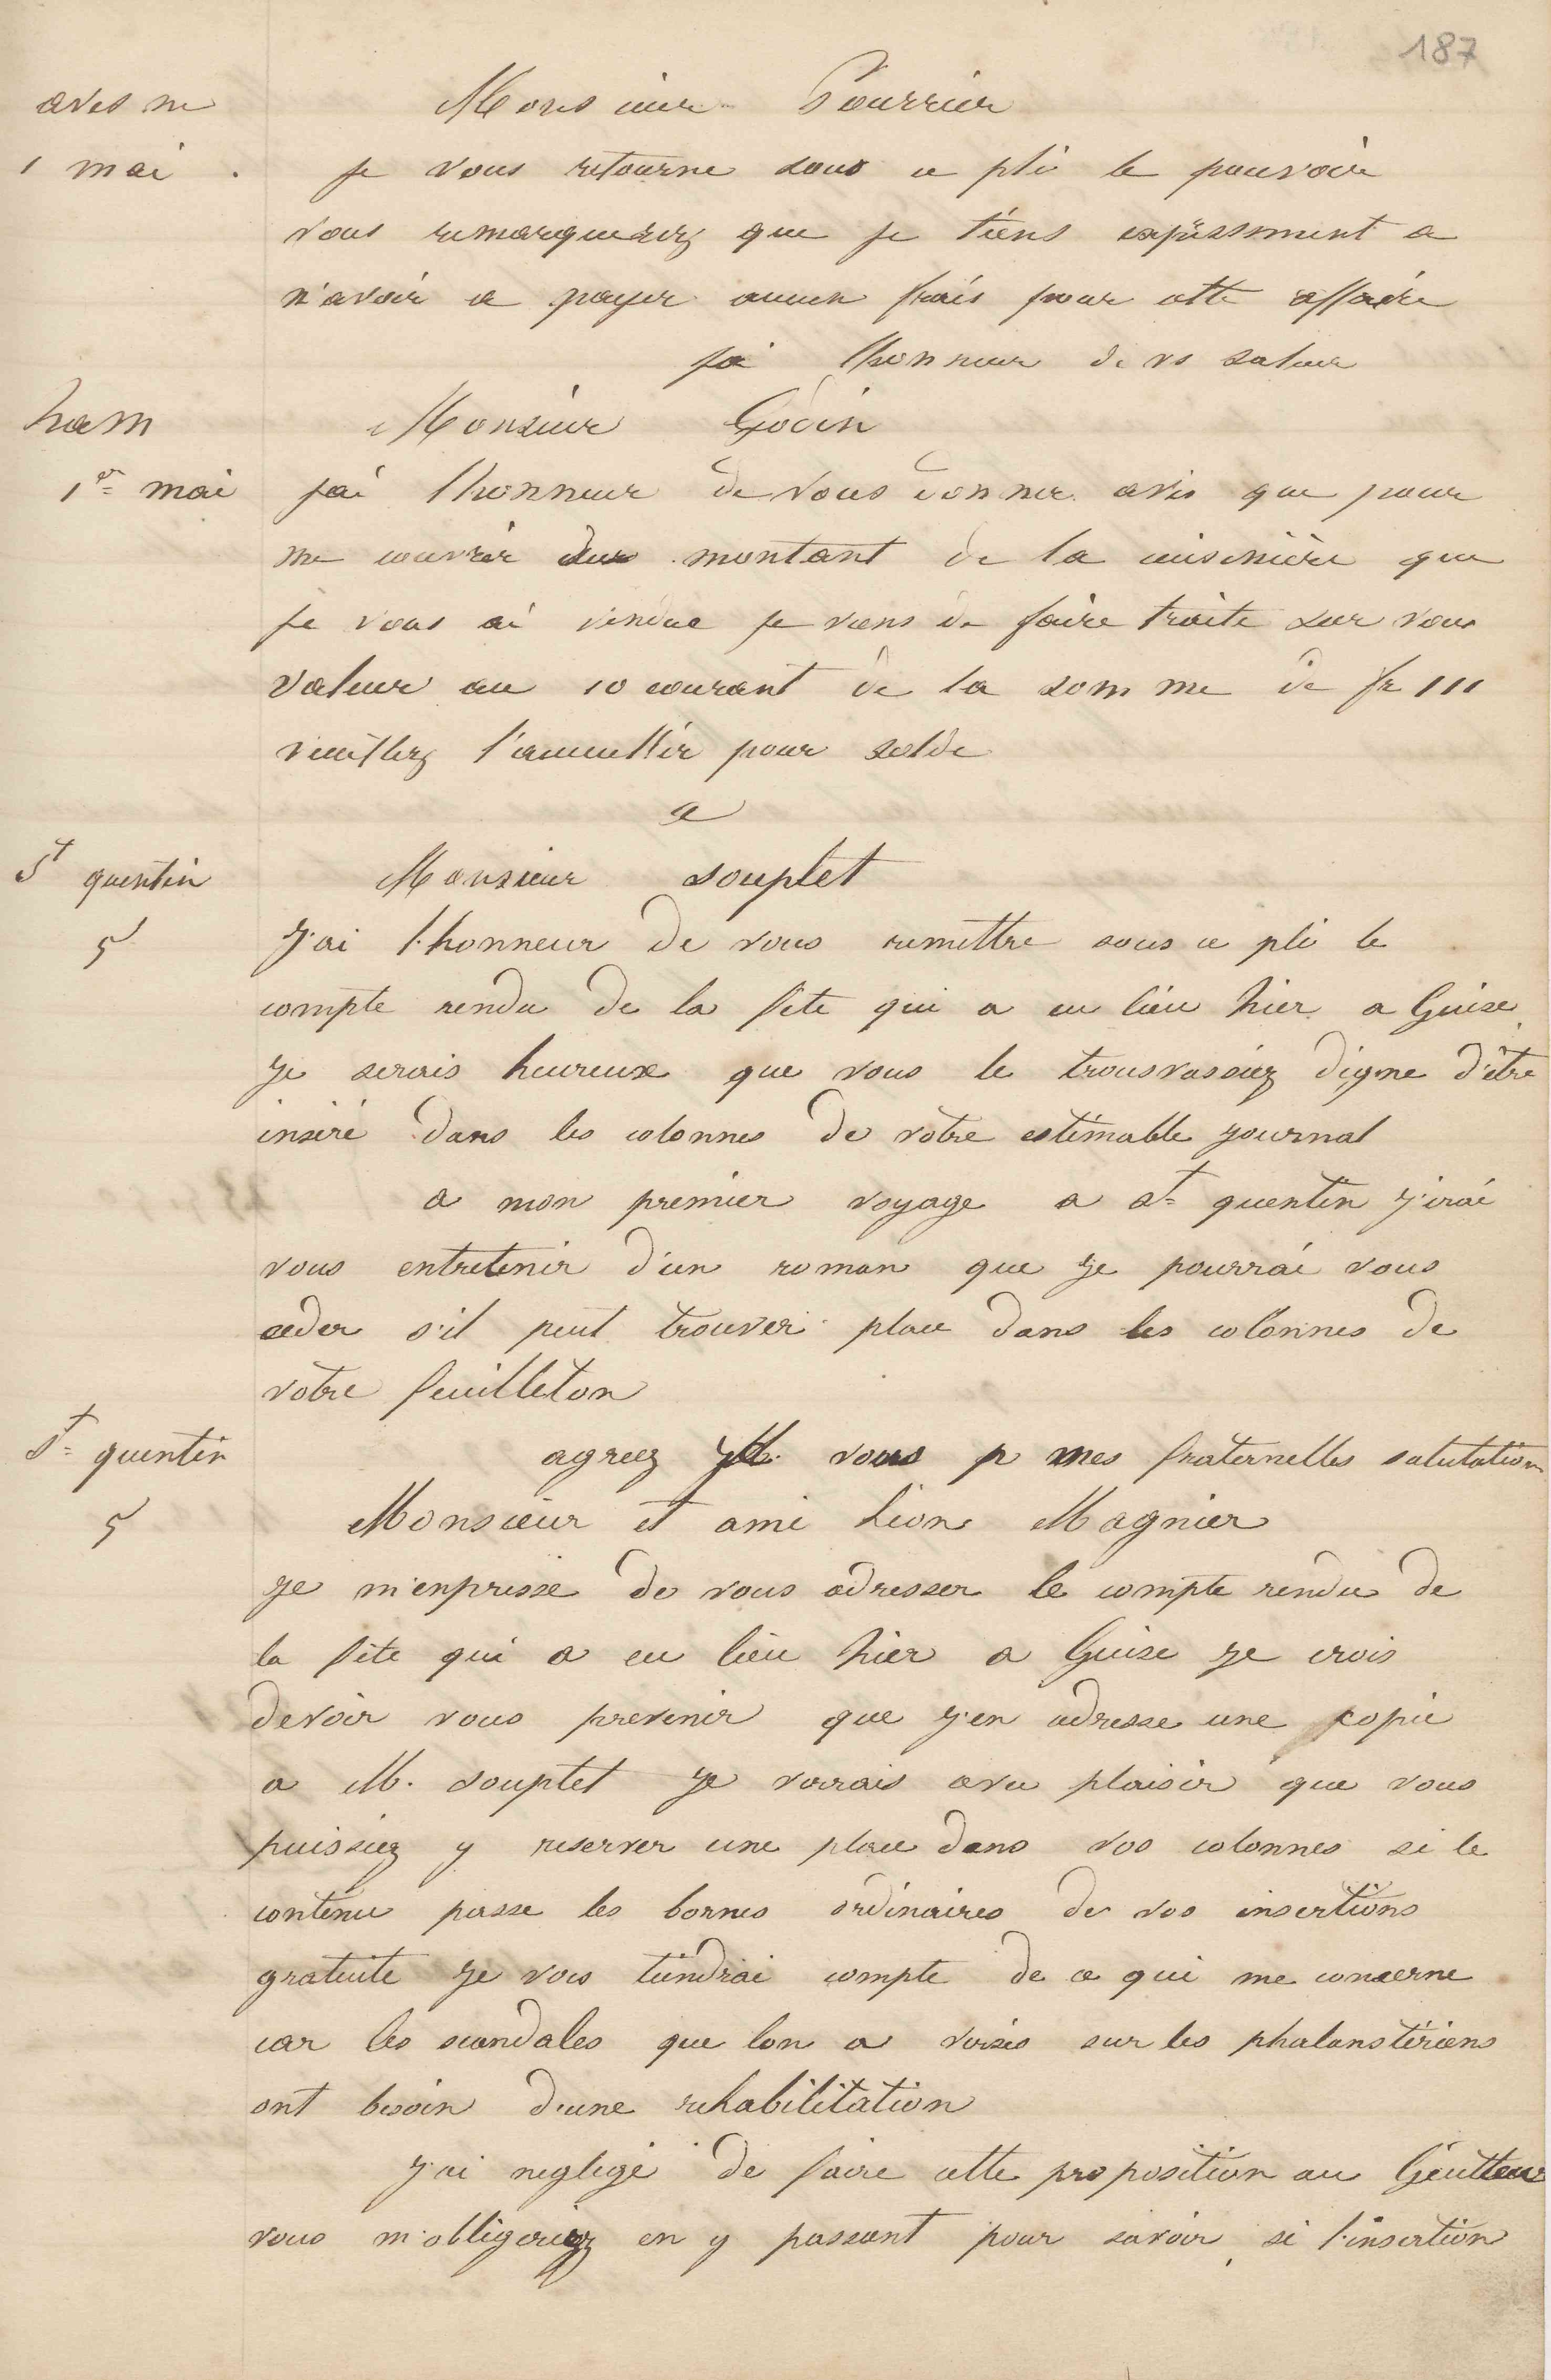 187
avesne
Monsieur Pourrier
1 mai .
je vous retourne sous ce pli le pouvoir
vous remarquerez que je tiens expressment a
n'avoir a payer aucun frais pour cette affaire
jai lhonneur de vs saluer
ham
Monsieur Godin
1er mai
jai lhonneur de vous donner avis que pour
me couvrir du montant de la cuisinière que
je vous ai vendue je viens de faire traite sur vous
valeur au 10 courant de la somme de fr 111
veuillez l'accueillir pour solde
a
St quentin
Monsieur souplet
5
J'ai l'honneur de vous remettre sous ce pli le
compte rendu de la fete qui a eu lieu hier a Guise
je serais heureux que vous le trouvassiez digne d'être
inséré dans les colonnes de votre estimable journal
a mon premier voyage a st quentin j'irai
vous entretenir d'un roman que je pourrai vous
ceder s'il peut trouver place dans les colonnes de
votre feuilleton
agreez M. vous p mes fraternelles salutation
St quentin
5
Monsieur et ami Léon Magnier
je m'enpresse de vous adresser le compte rendu de
la fête qui a eu lieu hier a Guise je crois
devoir vous prevenir que j'en adresse une copie
a M. souplet je verrais avec plaisir que vous
puissiez y reserver une place dans vos colonnes si le
contenu passe les bornes ordinaires de vos insertions
gratuite je vous tiendrai compte de ce qui me concerne
car les scandales que lon a versés sur les phalanstériens
ont besoin d'une rehabilitation
j'ai negligé de faire cette proposition au
vous m'obligeriez en y passant pour savoir si l'insertion